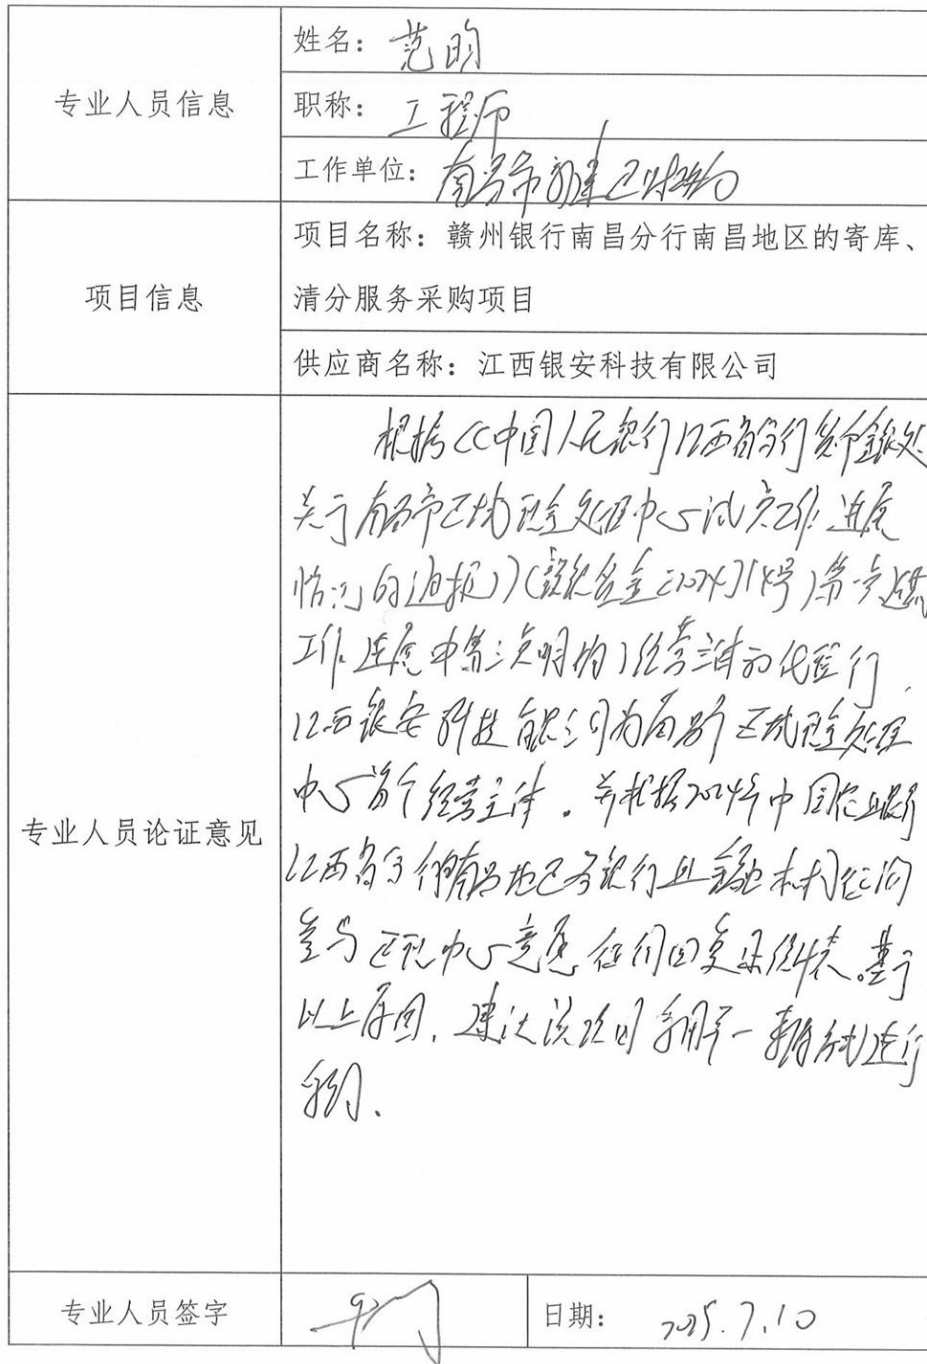 专业人员信息
姓名：范昀
职称：工程师
工作单位：南昌市新建区财政局
项目信息
项目名称：赣州银行南昌分行南昌地区的寄库、
清分服务采购项目
供应商名称：江西银安科技有限公司
专业人员论证意见
根据《中国人民银行江西省分行货币金银处
关于南昌市区域现金处理中心试点工作进展
情况的通报》(2024)14号)第一点
工作进展中第三点明为经营主体的代理行，
江西银安科技有限公司为南昌市区域现金处理
中心首个经营主体。并根据2024年中国人民银行
江西省分行南昌地区各银行业金融机构征询
参与区现中心意愿征询回复统计表。基于
以上原因，建议该项目采用单一来源方式进行
采购。
专业人员签字
日期：2025.7.10